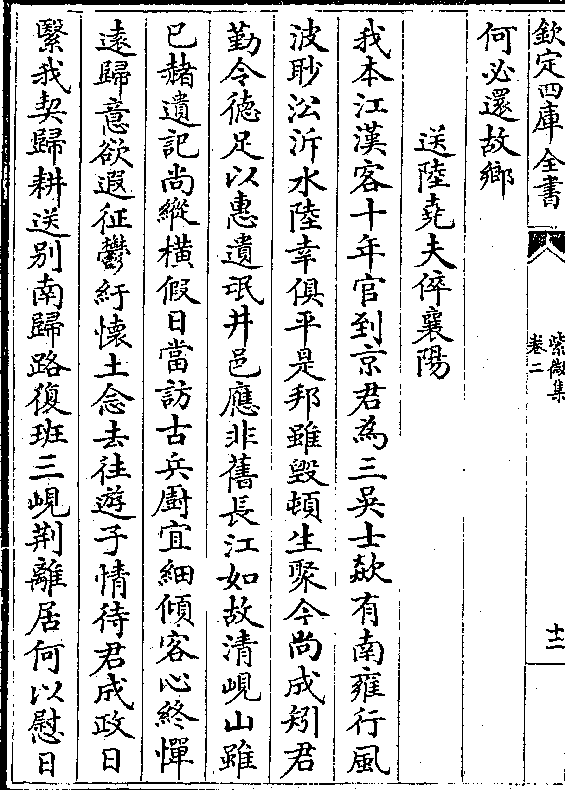 欽定四庫全書
紫微集
卷二
十二
何必還故鄉
送陸堯夫倅襄陽
我本江漢客十年官到京君為三吳士歘有南雍行風
波眇㳂泝水陸幸俱平是邦雖毀頓生聚今尚成矧君
勤令德足以惠遺氓井邑應非舊長江如故清峴山雖
已赭遺記尚縱橫假日當訪古兵厨宜細傾客心終憚
遠歸意欲遐征鬱紆懷土念去往遊子情待君成政日
繄我契歸耕送別南歸路復班三峴荆離居何以慰日